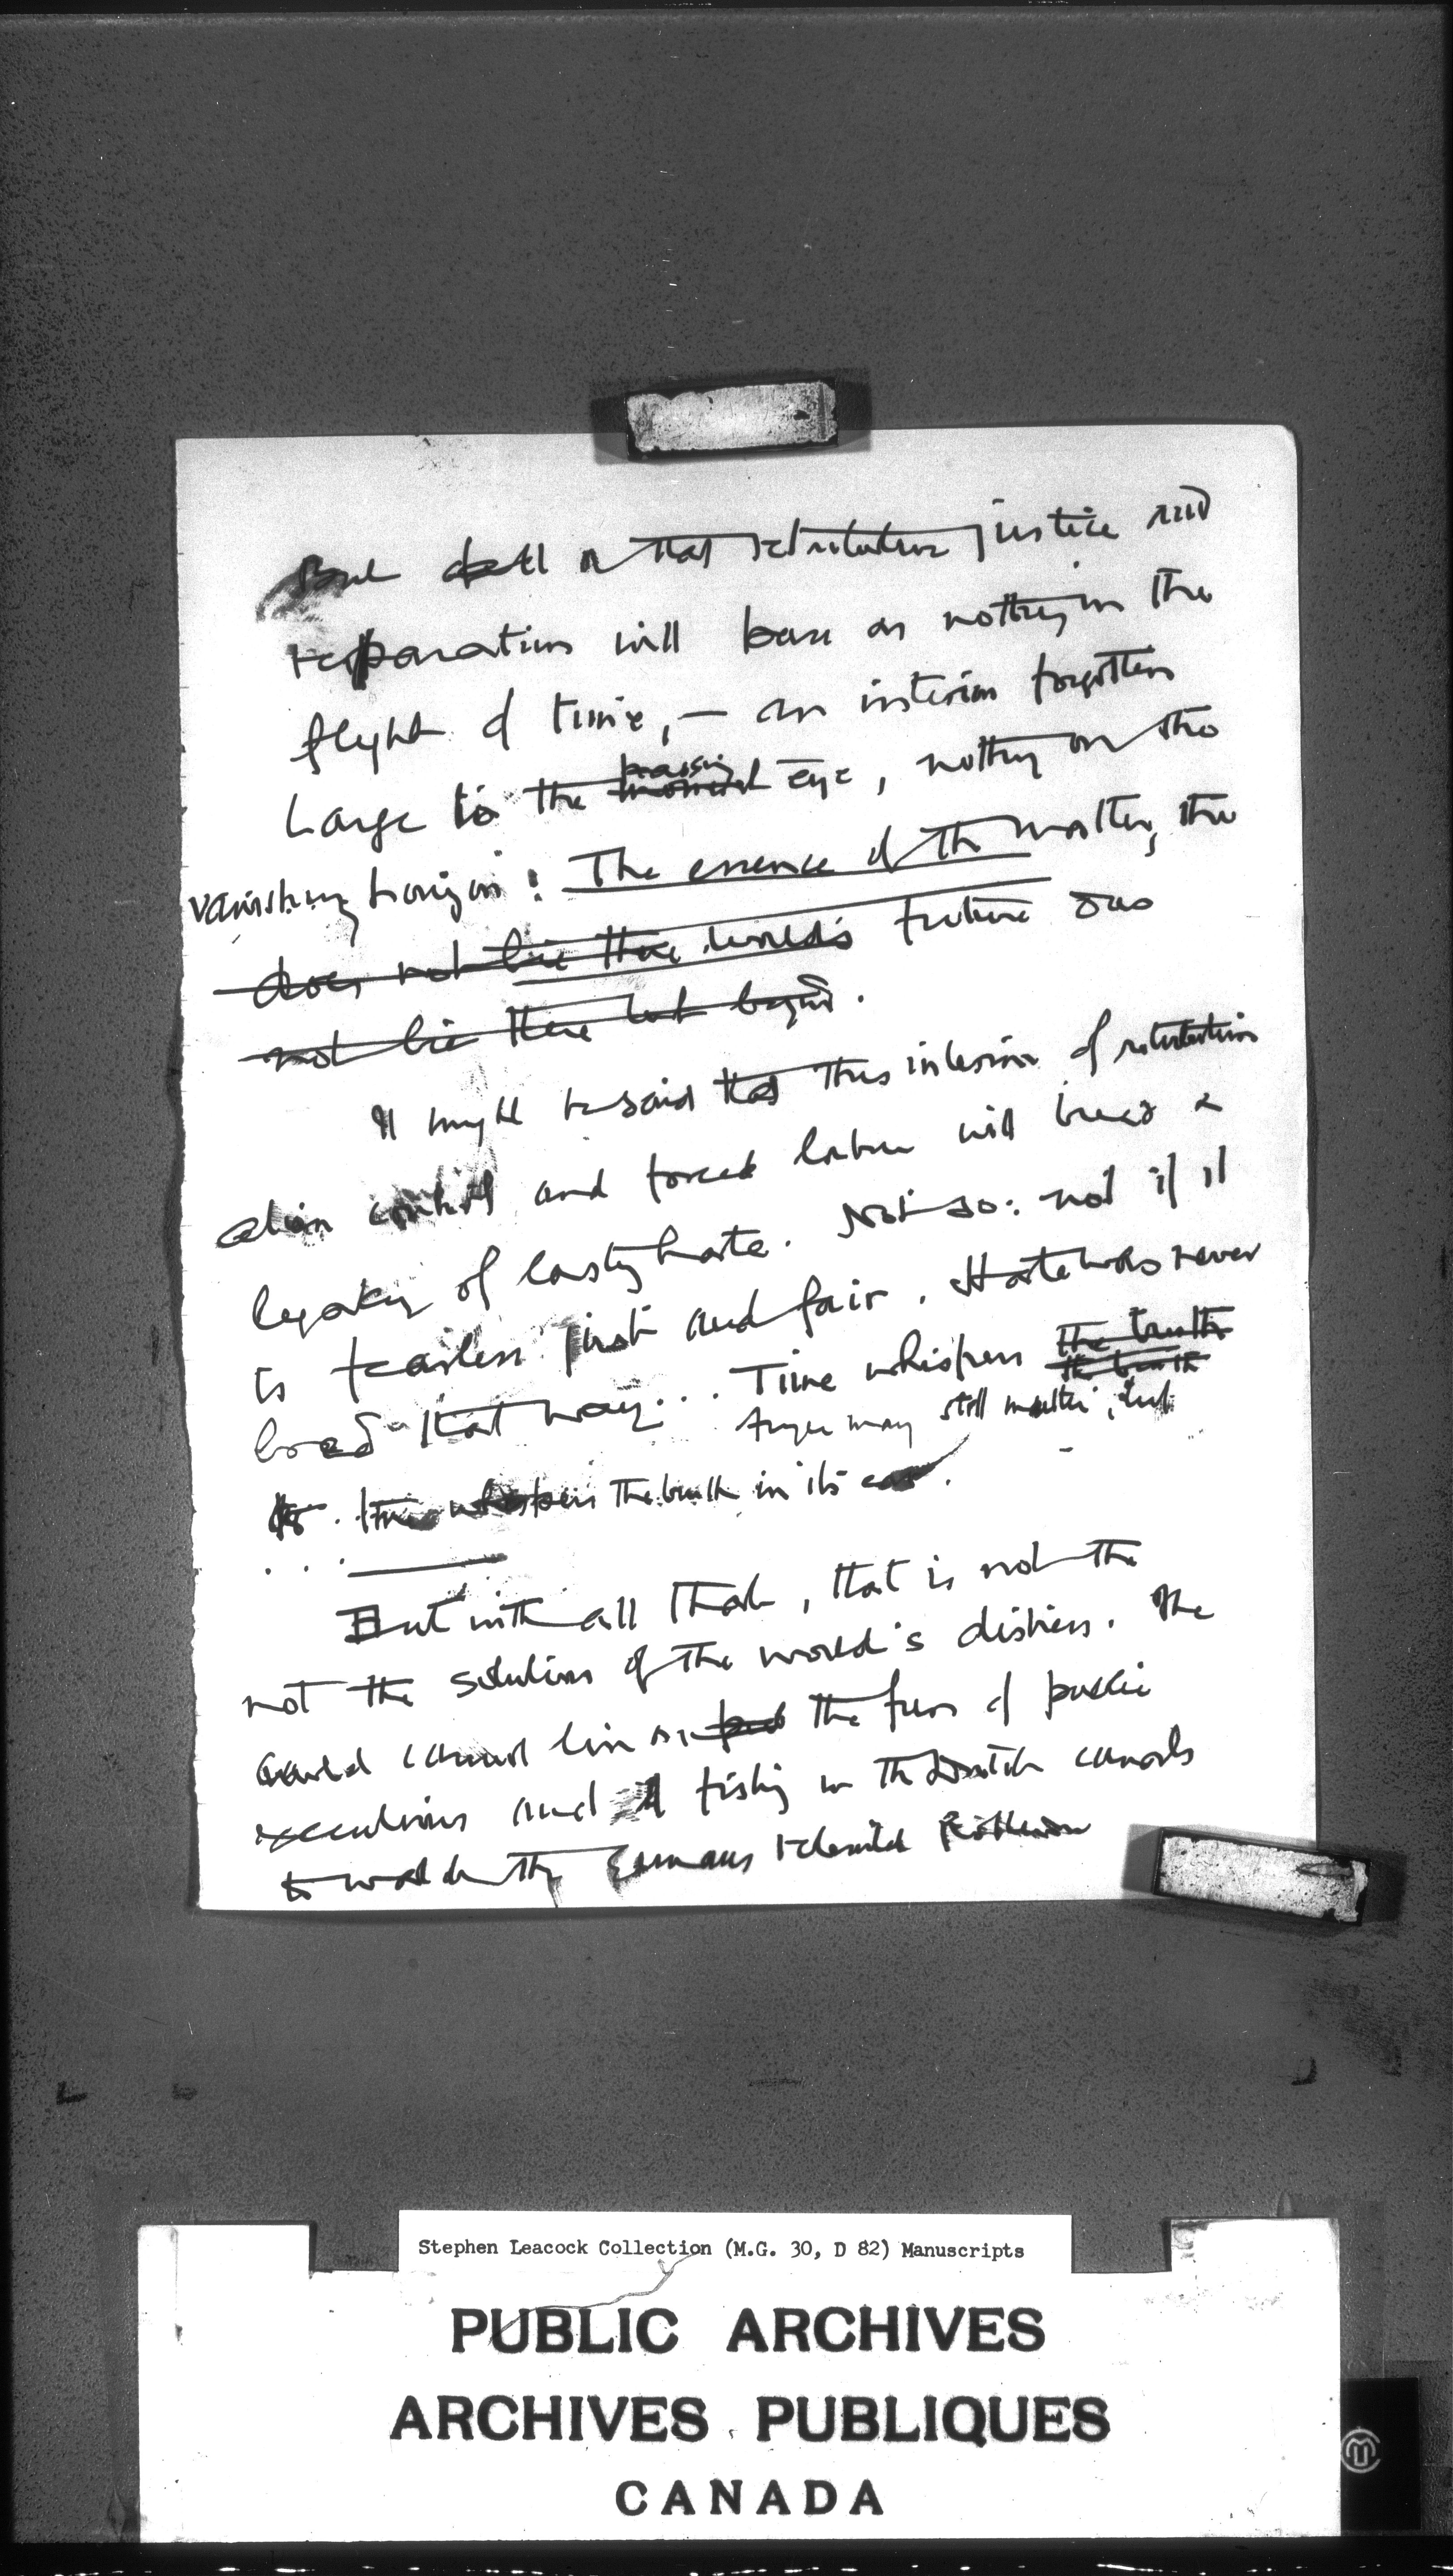 But all that retributive justice and
reparation will pass as nothing in the
flight of time, — an interim forgotten
large to the passing eye, nothing on the
vanishing horizon: The essence of the matter, the
does not lie there world's future does
not lie there but beyond.
It might be said that this interim of retribution
alien control and forced labour will breed a
legacy of lasting hate. Not so: not if it
is fearless just and fair. Hate was never
bred that way... Time whispers the truth
Anger may still mutter, but
time whispers the truth in its ear.
But with all that, that is not the
not the solution of the world's distress. The
world cannot live on the fun of public
executions and fishing in the Dutch canals
to watch the Germans rebuild Rotterdam
Stephen Leacock Collection (M.G. 30, D 82) Manuscripts
PUBLIC ARCHIVES
ARCHIVES PUBLIQUES
CANADA